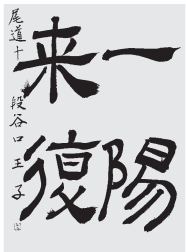 一陽
来復
尾道十一段谷口王子